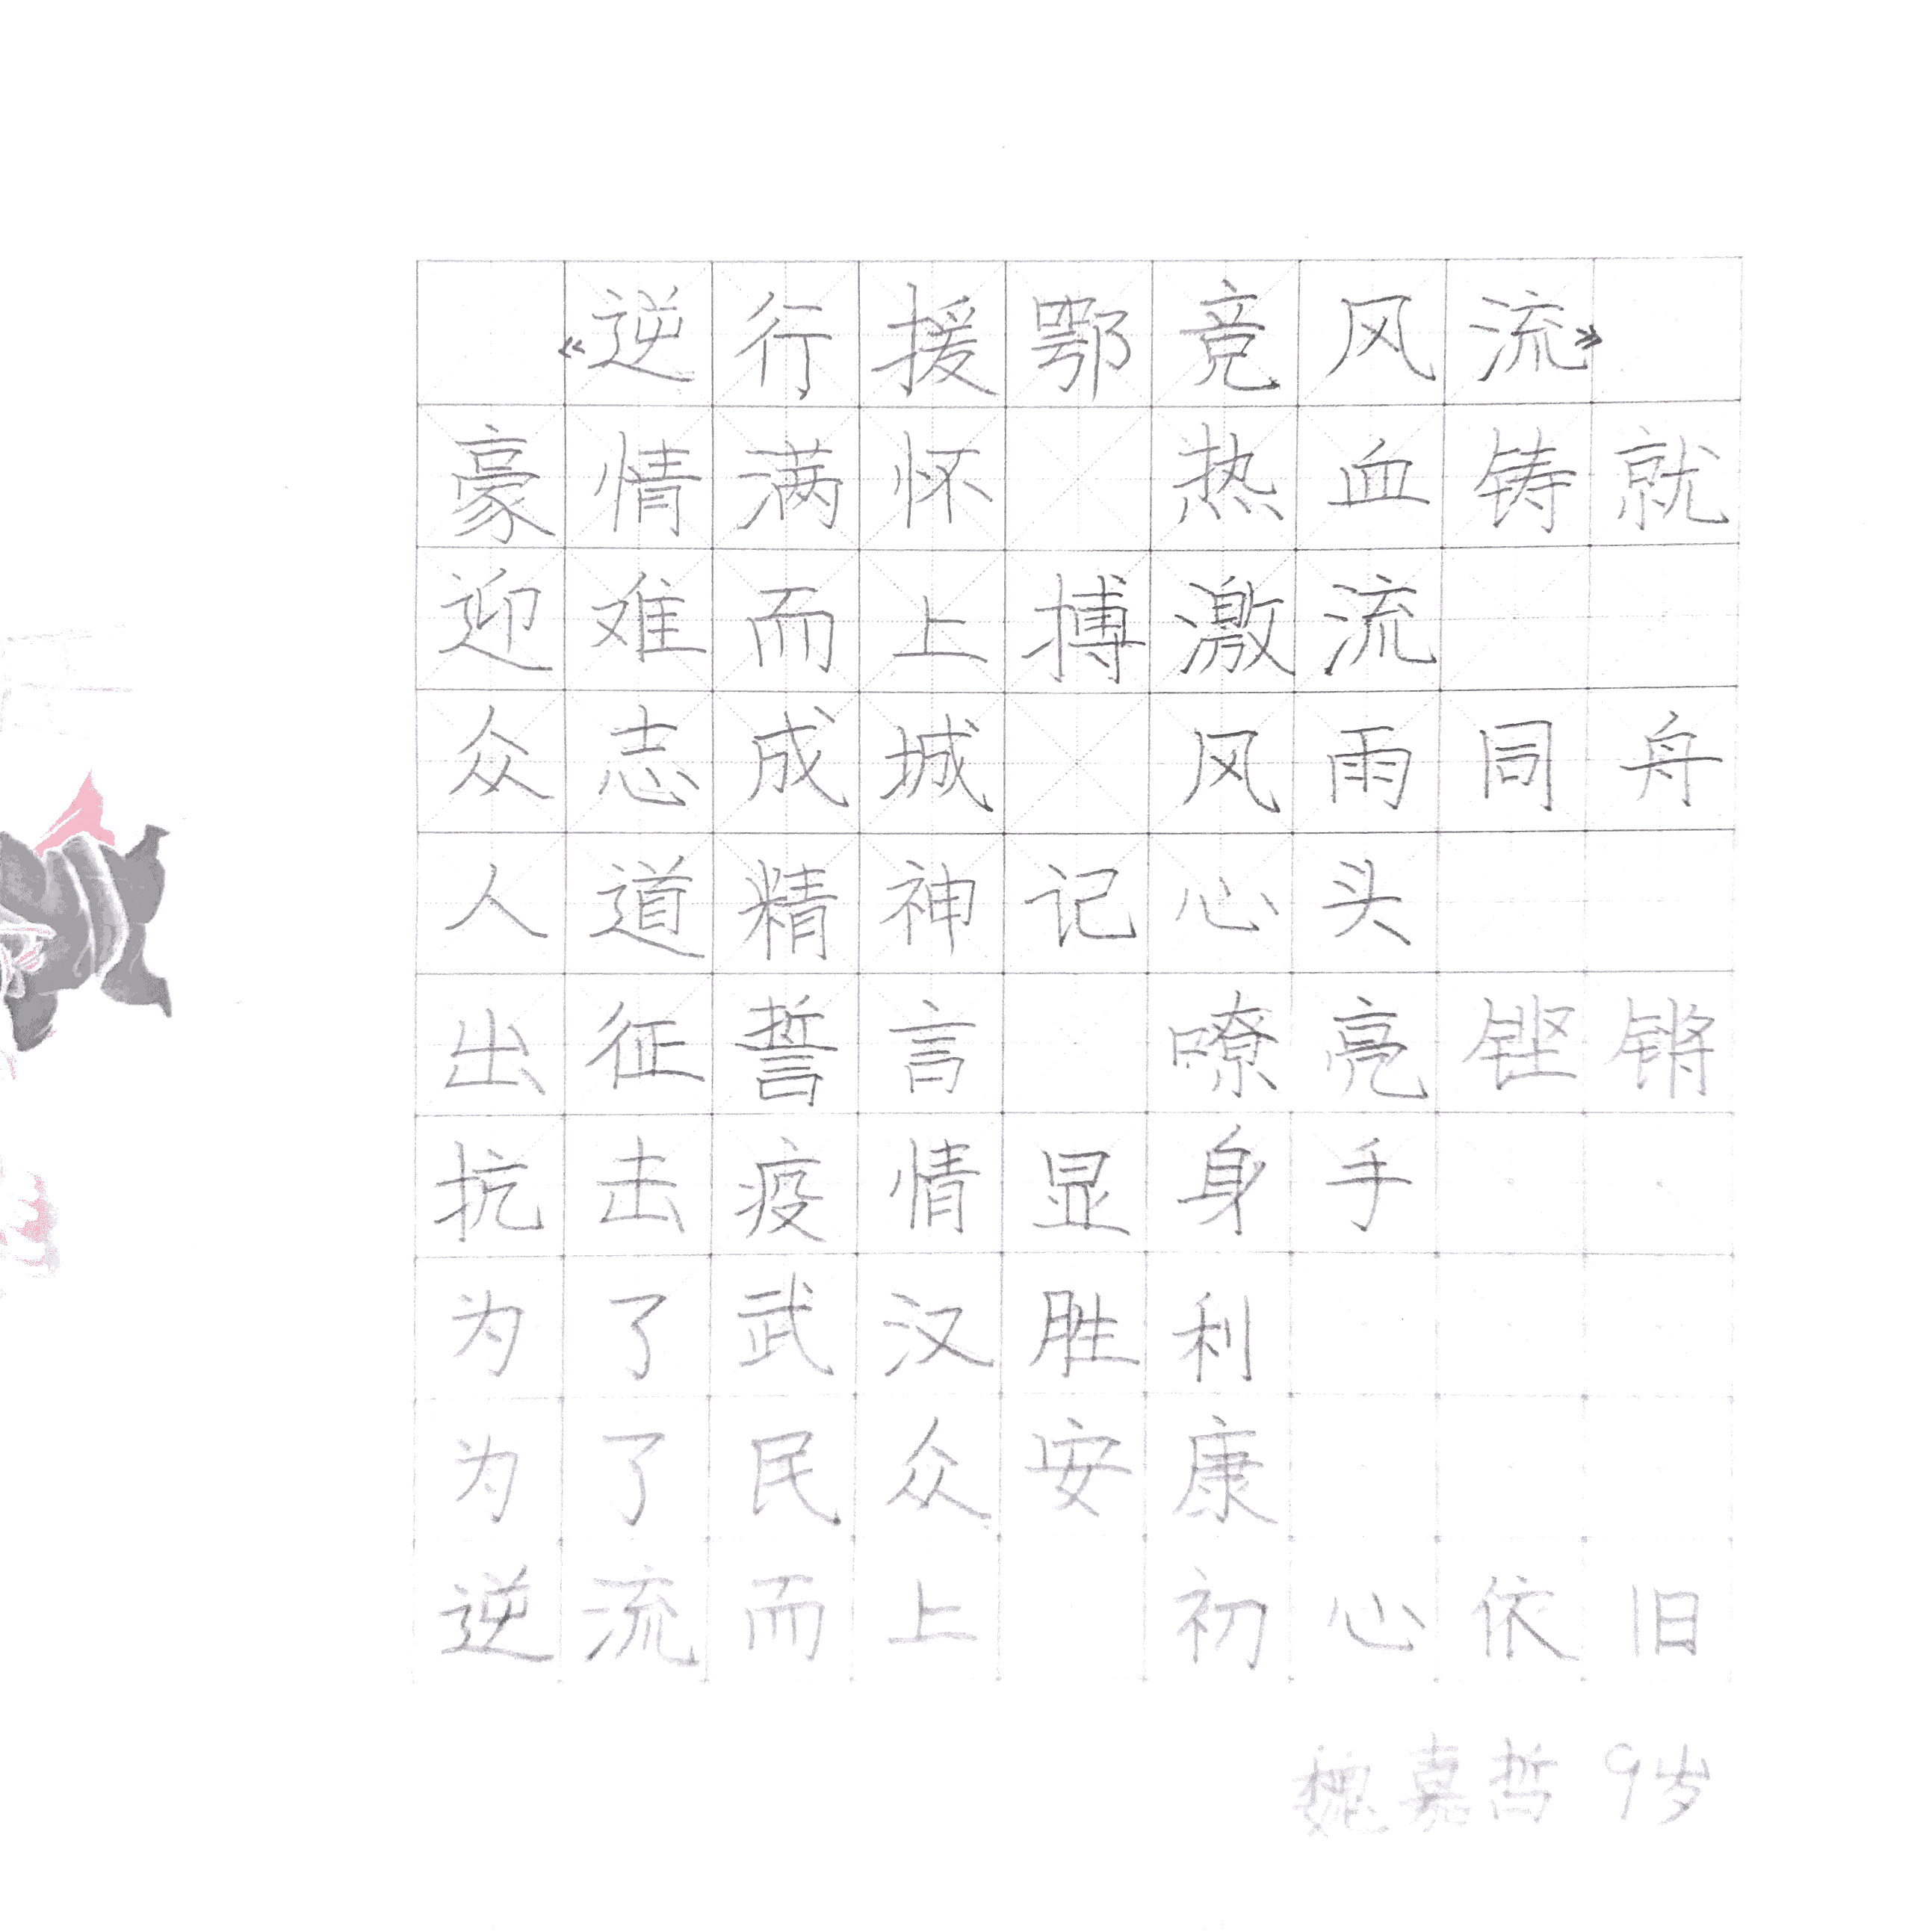 《逆行援鄂竞风流》
豪情满怀 热血铸就
迎难而上搏激流
众志成城 风雨同舟
人道精神记心头
出征誓言 嘹亮铿锵
抗击疫情显身手
为了武汉胜利
为了民众安康
逆流而上 初心依旧
魏嘉哲 9岁